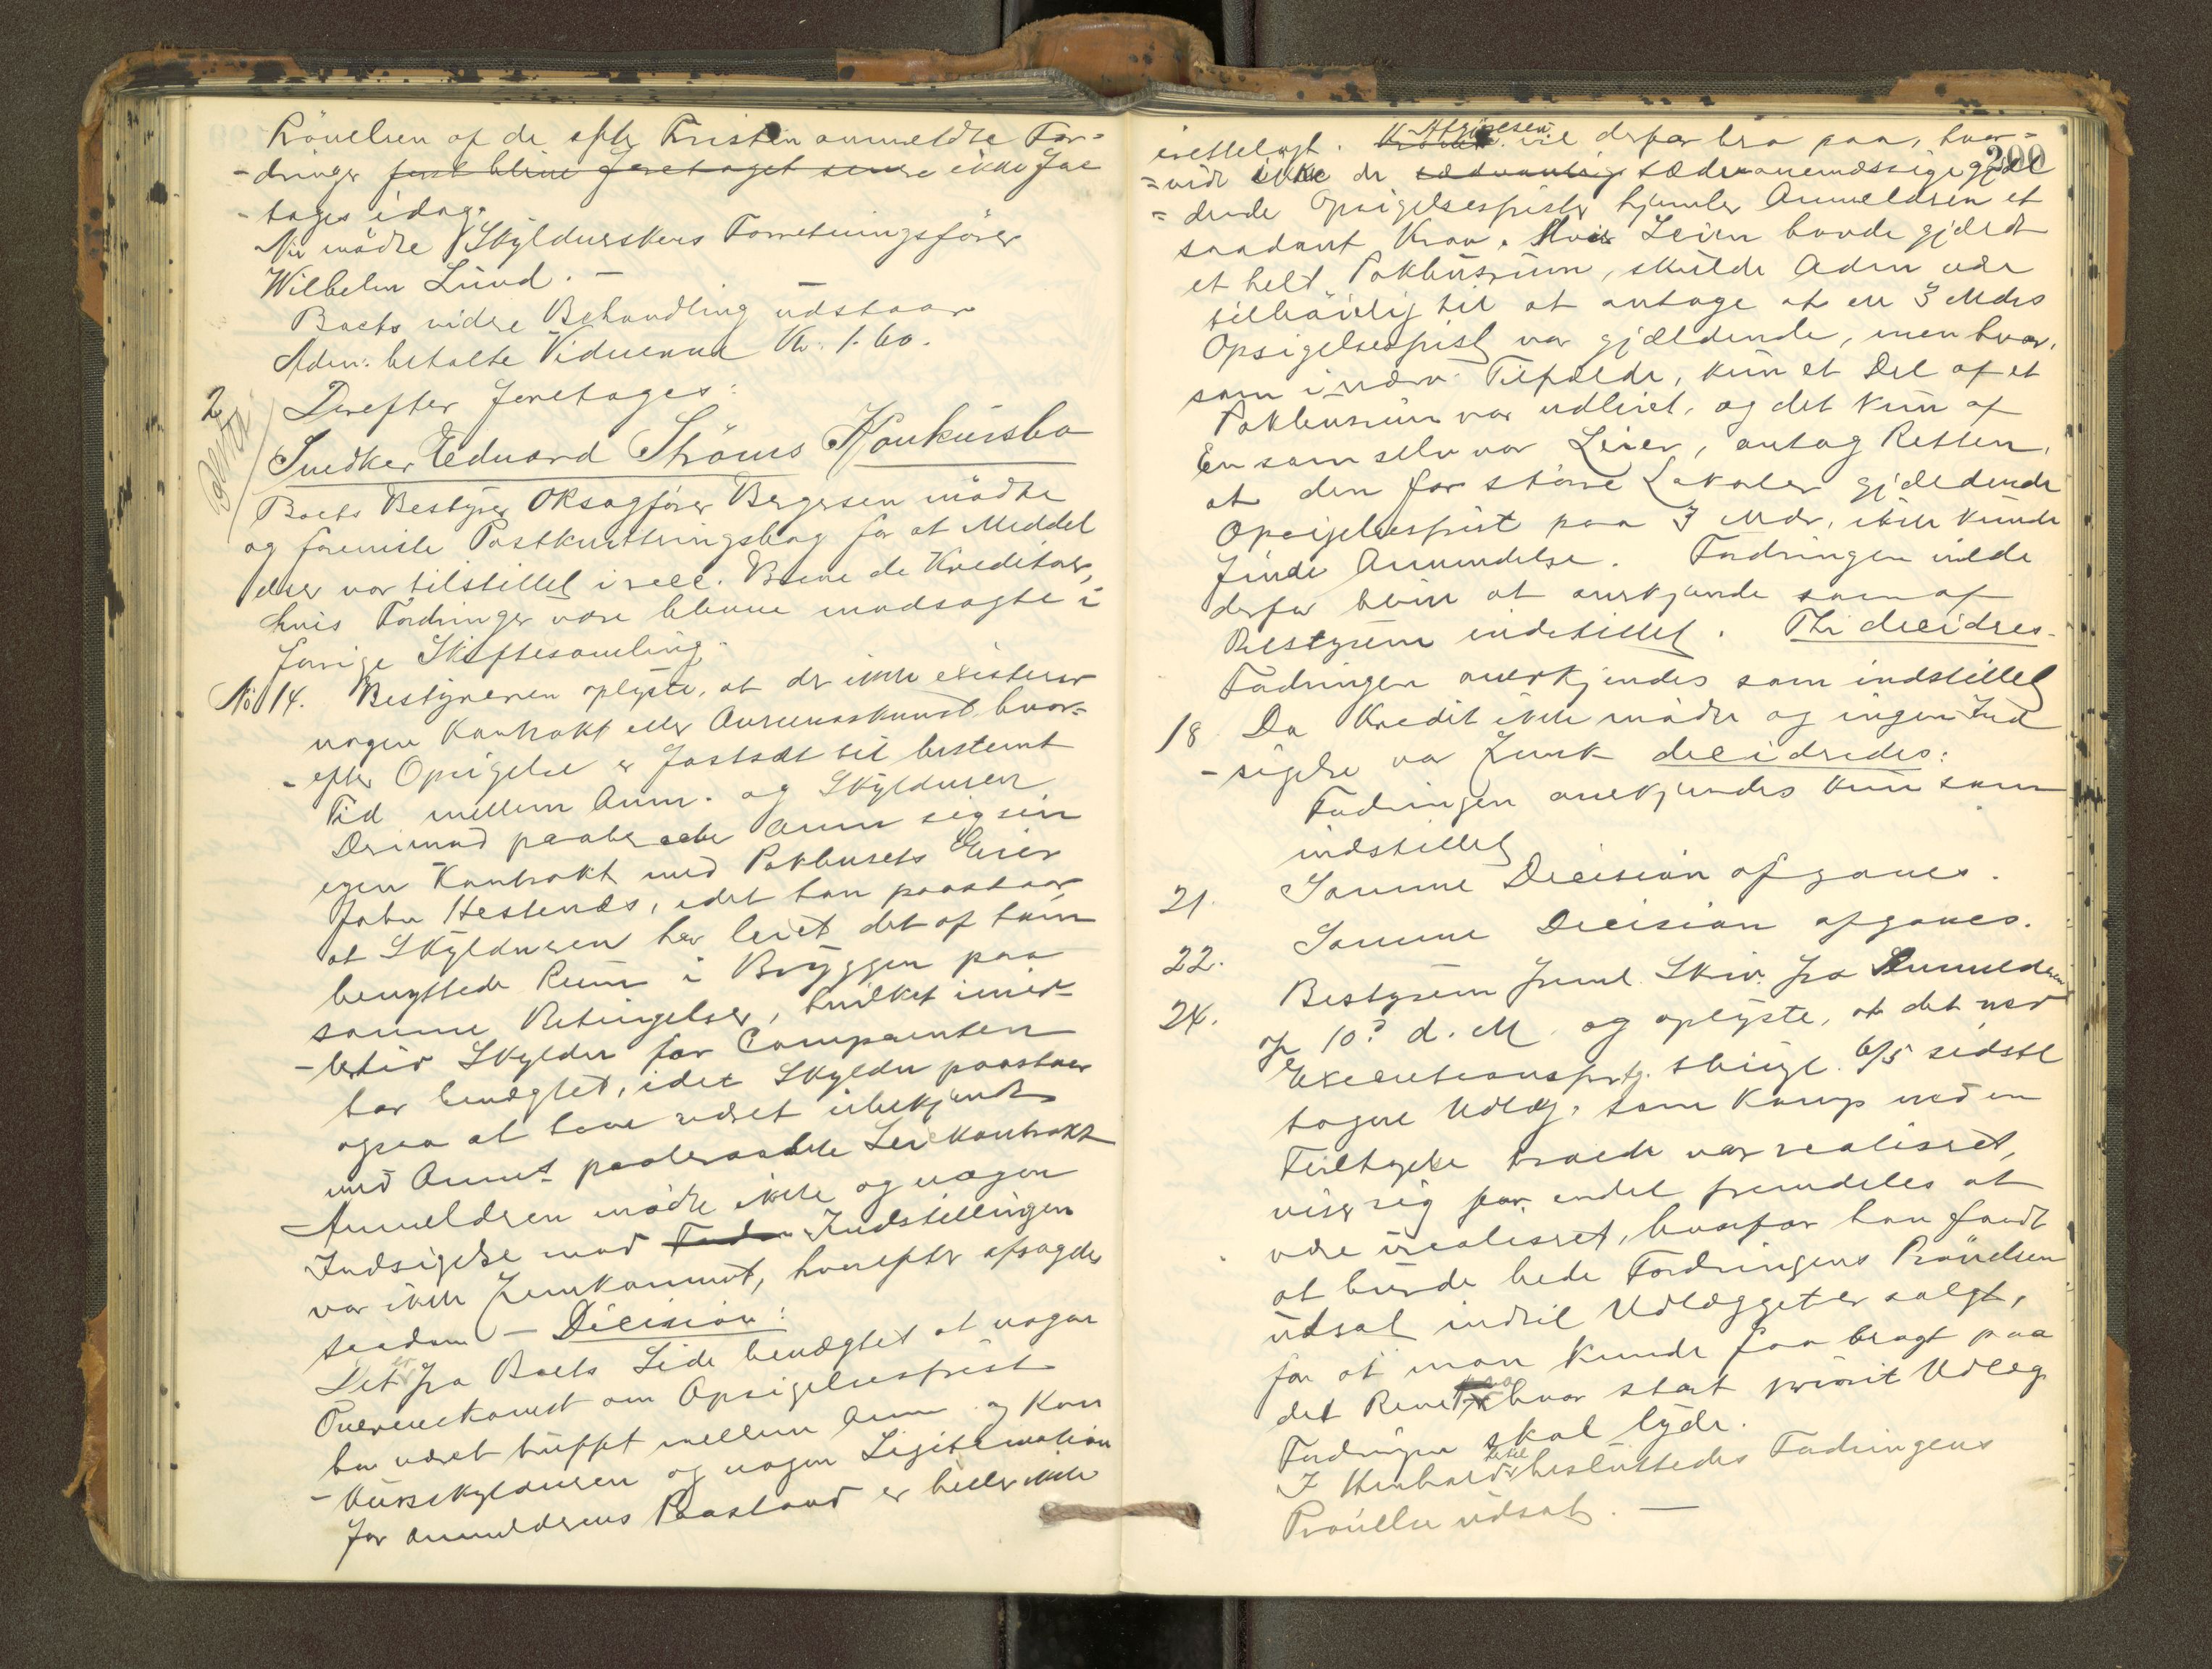 Prövelsen af de efter Fristen anmeldte For-
-dringer först blive foretaget senere ikke fore
-tages idag.
Nu mödte Skyldnerskens Forretningsförer
Wilhelm Lund. -
Boets videre Behandling udstaar
Adm. betalte Vidnerne Kr. 1.60.
2 Derefter foretoges:
Snedker Eduard Ströms Konkursbo
Boets Bestyrer OKsagförer Bergersen mödte
og fremlæ Postkvitteringsbog for at Meddel
elser var tilstillet i rece. Breve de Kreditorer,
hvis Fordringer vare blevne modsagte i
forrige Skiftesamling.
No 14. Bestyreren oplyste, at der ikke existerer
nogen Kontrakt eller Overenskomst hvor-
-efter Opsigelse er fastsat til bestemt
Tid mellem Anm. og Skyldneren
Derimod paaberaabe Anm sig sin
egen Kontrakt med Pakhusets Eier
John Hestenæs, idet han paastaar
at Skyldneren har leiet det af ham
benyttede Rum i Bryggen paa
samme Betingelser, hvilket imid-
-lertid Skyldn for Comparenten
har benægtet, idet Skyldn paastaar
ogsaa at have været ubekjendt
med Anm's paaberaabte Leiekontrakt
Anmelderen mödte ikke og nogen
Indsigelse mod Indstillingen
var ikke fremkommet, hvorefter afsagdes
saadan - Decision:
Det er fra Boets Side benægtet at nogen
Overenskomst om Opsigelsesfrist
har været truffet mellem Anm og Kon
-kursskyldneren og nogen Legitimation
for Anmelderens Paastand er heller ikke
200
irettelagt. Afgjörelsen vil derfor bero paa, hvor-
-vidt ikke de sædvanlig sædvanemæssige gjæl
-dende Opsigelsesfrister hjemler Anmelderen et
saadant Krav. Hvis Leien havde gjældt
et helt Pakhusrum, skulde Adm være
tilböielig til at antage at en 3 Mdrs
Opsigelsesfrist var gjældende, men hvor,
som i nærv. Tilfælde, kun et Del af et
Pakhusrum var udleiet, og det kun af
En som selv var Leier, antog Retten,
at den for större Lokaler gjældende
Opsigelsesfrist paa 3 Mdr, ikke kunde
finde Anvendelse. Fordringen vilde
derfor blive at anerkjende som af
Bestyreren indstillet. Thi decideres.
Fordringen anerkjendes som indstillet
18 Da Kredit ikke mödte og ingen Ind
-sigelse var fremk decideredes:
Fordringen anerkjendes kun som
indstillet
21. Samme Decision afgaves.
22. Samme Decision afgaves.
24. Bestyreren freml. Skriv. fra Anmelderen
af 10de d. M. og oplyste, at det ved
Executionsfortg. thingl. 6/5 sidstl
tagne Udlæg, som Komp ved en
Feiltagelse troede var realiseret,
viser sig for endel fremdeles at
være urealiseret, hvorfor han fandt
at burde bede Fordringens Prövelsen
udsat indtil Udlægget er solgt,
for at man kunde faa bragt paa
det Rene paa hvor stort priorit Udlæg
Fordringen skal lyde.
I Henhold hertil besluttedes Fordringens
Prövelse udsat. -